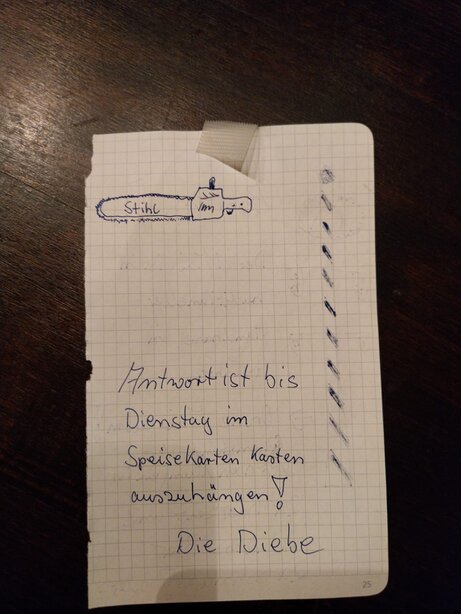 Stihl
Antwort ist bis
Dienstag im
Speisekarten Kasten
auszuhängen!
Die Diebe
25